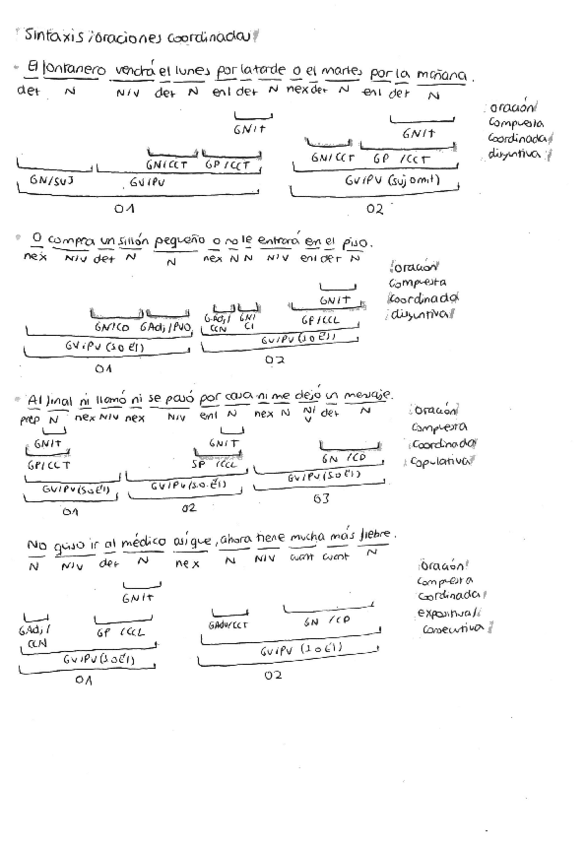 Sintaxis: oraciones coordinadas
El fontanero vendrá el lunes por la tarde o el martes por la mañana.
det N N/V det N enl det N nex det N enl det N
oración
compuesta
coordinada
disyuntiva
GN/T GN/T
GN/CCT GP/CCT GN/CCT GP/CCT
GN/SUJ GV/PV GV/PV (suj omit)
O1 O2
O compra un sillón pequeño o no le entrará en el piso.
nex N/V det N N nex N N N/V enl det N
oración
compuesta
coordinada
disyuntiva
GN/T
GN/CD GAdj/PVO GAdj/CCN GN/CI GP/CCL
GV/PV (S.O él) GV/PV (S.O él)
O1 O2
Al final ni llamó ni se pasó por casa ni me dejó un mensaje.
prep N nex N/V nex N/V enl N nex N N/V det N
oración
compuesta
coordinada
copulativa
GN/T GN/T
GP/CCT SP/CCL GN/CD
GV/PV (S.O él) GV/PV (S.O él) GV/PV (S.O él)
O1 O2 O3
No quiso ir al médico así que, ahora tiene mucha más fiebre.
N N/V det N nex N N/V cuant cuant N
oración
compuesta
coordinada
consecutiva
GN/T
GAdj/CCN GP/CCL GAdv/CCT GN/CD
GV/PV (S.O él) GV/PV (S.O él)
O1 O2